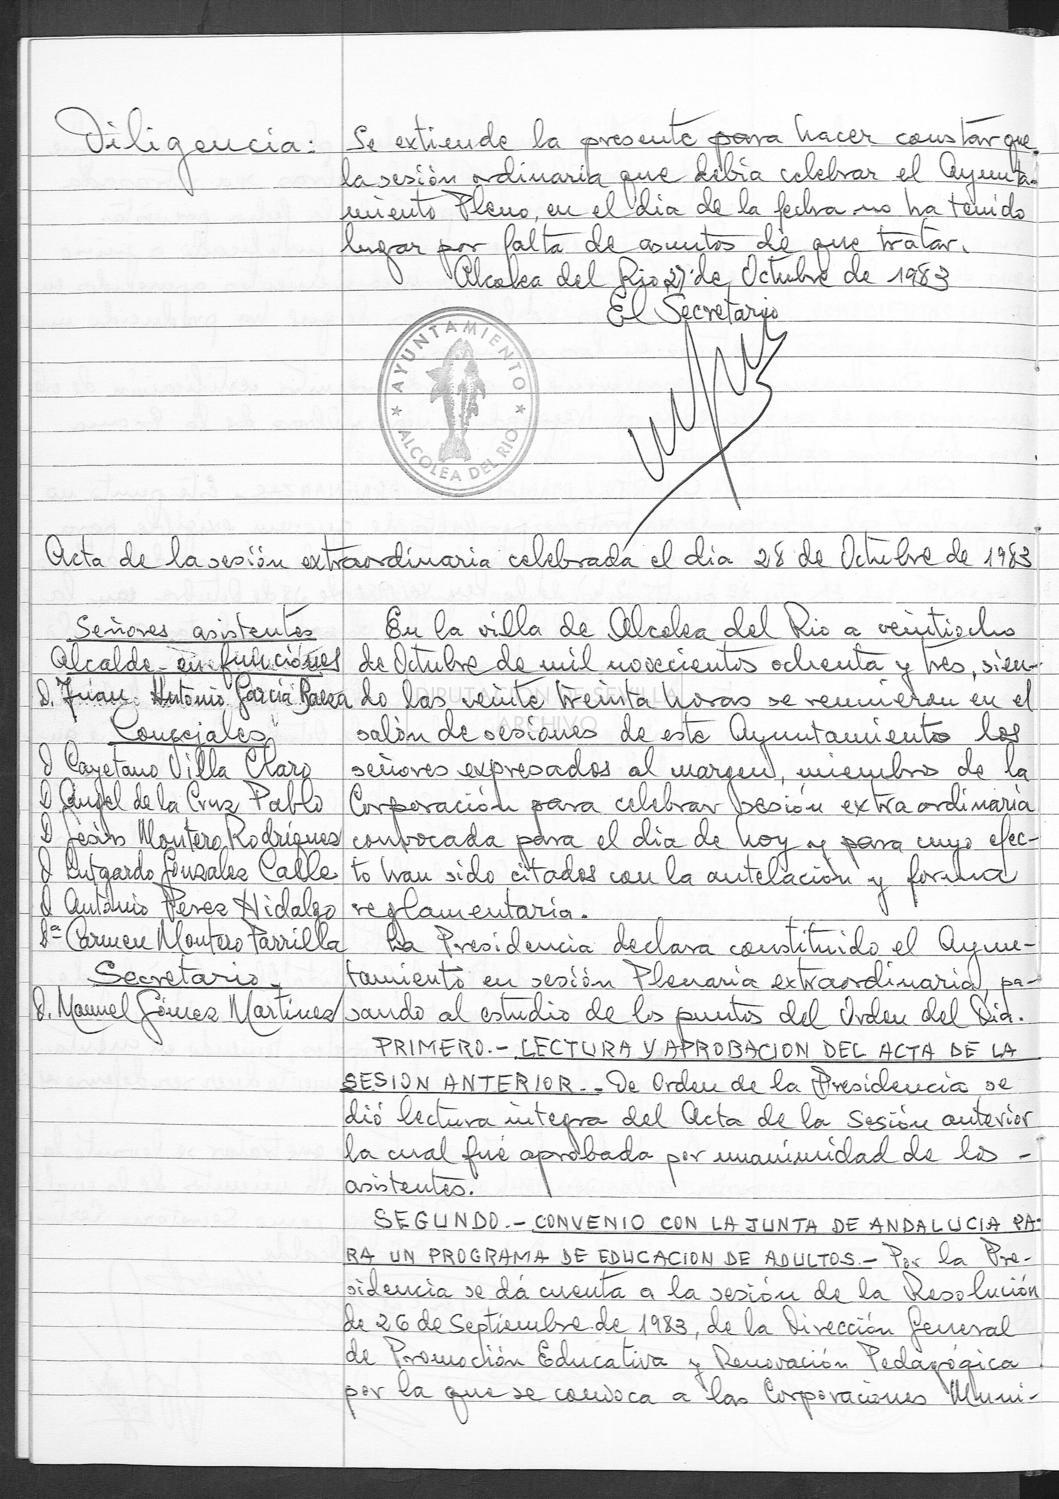 Diligencia: Se extiende la presente para hacer constar que
la sesión ordinaria que debía celebrar el Ayunta-
miento Pleno, en el día de la fecha no ha tenido
lugar por falta de asuntos de que tratar.
Alcolea del Rio 27 de Octubre de 1983
El Secretario
AYUNTAMIENTO
ALCOLEA DEL RIO
Acta de la sesión extraordinaria celebrada el dia 28 de Octubre de 1983
Señores asistentes
Alcalde en funciones
D. Juan Antonio García Baeza
Concejales
D Cayetano Villa Claro
D Angel de la Cruz Pablo
D Jesús Montero Rodríguez
D Lutgardo Gonzalez Calle
D Antonio Pérez Hidalgo
Dª Carmen Montero Parrilla
Secretario
D. Manuel Gómez Martínez
En la villa de Alcolea del Rio a veintiocho
de Octubre de mil novecientos ochenta y tres, sien-
do las veinte treinta horas se reunieron en el
salón de sesiones de este Ayuntamiento los
señores expresados al margen, miembros de la
Corporación para celebrar sesión extraordinaria
convocada para el dia de hoy y para cuyo efec-
to han sido citados con la antelación y forma
reglamentaria.
La Presidencia declara constituido el Ayun-
tamiento en sesión Plenaria extraordinaria, pa-
sando al estudio de los puntos del Orden del Día.
PRIMERO.- LECTURA Y APROBACION DEL ACTA DE LA
SESION ANTERIOR.- De Orden de la Presidencia se
dió lectura integra del Acta de la Sesión anterior
la cual fué aprobada por unanimidad de los -
asistentes.
SEGUNDO.- CONVENIO CON LA JUNTA DE ANDALUCIA PA-
RA UN PROGRAMA DE EDUCACION DE ADULTOS.- Por la Pre-
sidencia se dá cuenta a la sesión de la Resolución
de 26 de Septiembre de 1983, de la Dirección General
de Promoción Educativa y Renovación Pedagógica
por la que se convoca a las Corporaciones Muni-
DIPUTACIÓN DE SEVILLA
ARCHIVO